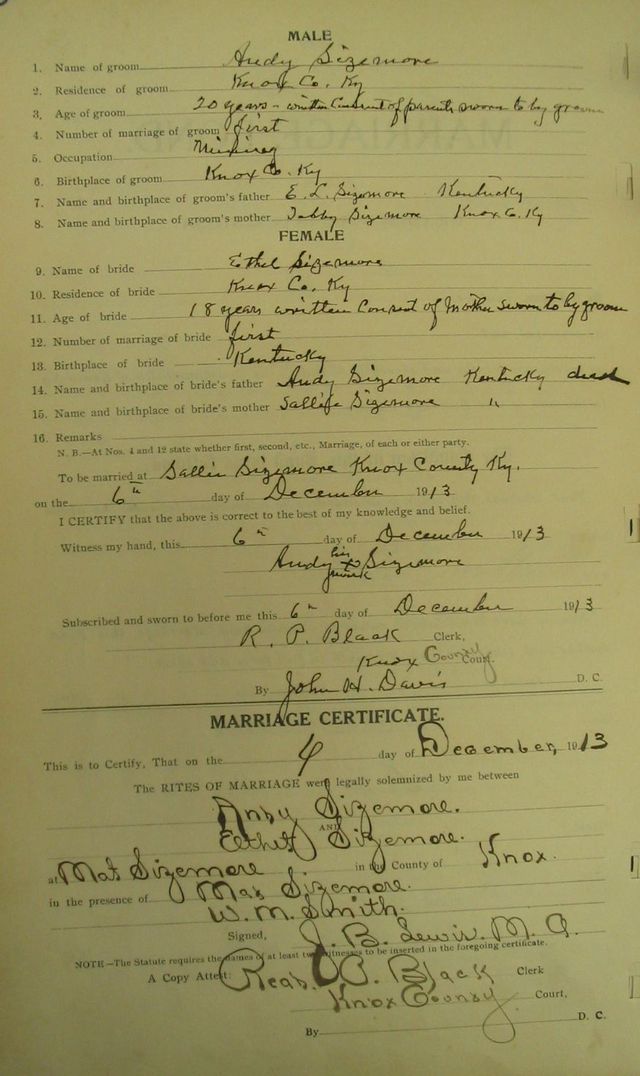 MALE
1. Name of groom Andy Sizemore
2. Residence of groom Knox Co. Ky
3. Age of groom 20 years - written Consent of parents sworn to by groom
4. Number of marriage of groom first
5. Occupation Mining
6. Birthplace of groom Knox Co. Ky
7. Name and birthplace of groom's father E. L. Sizemore Kentucky
8. Name and birthplace of groom's mother Tabby Sizemore Knox Co. Ky
FEMALE
9. Name of bride Ethel Sizemore
10. Residence of bride Knox Co. Ky
11. Age of bride 18 years written Consent of Mother sworn to by groom
12. Number of marriage of bride first
13. Birthplace of bride Kentucky
14. Name and birthplace of bride's father Andy Sizemore Kentucky dead
15. Name and birthplace of bride's mother Sallie Sizemore "
16. Remarks
N. B.—At Nos. 4 and 12 state whether first, second, etc., Marriage, of each or either party.
To be married at Sallie Sizemore Knox County Ky.
on the 6th day of December 1913
I CERTIFY that the above is correct to the best of my knowledge and belief.
Witness my hand, this 6th day of December 1913
Andy his x mark Sizemore
Subscribed and sworn to before me this 6th day of December 1913
R. P. Black Clerk,
Knox County Court.
By John H. Davis D. C.
MARRIAGE CERTIFICATE.
This is to Certify, That on the 4 day of December, 1913
The RITES OF MARRIAGE were legally solemnized by me between
Andy Sizemore.
AND
Ethel Sizemore.
at Mat Sizemore in the County of Knox.
in the presence of Mat Sizemore.
W. M. Smith.
Signed, J. B. Lewis. M. G.
NOTE—The Statute requires the names of at least two witnesses to be inserted in the foregoing certificate.
A Copy Attest: Read P. Black Clerk
Knox County Court,
By D. C.